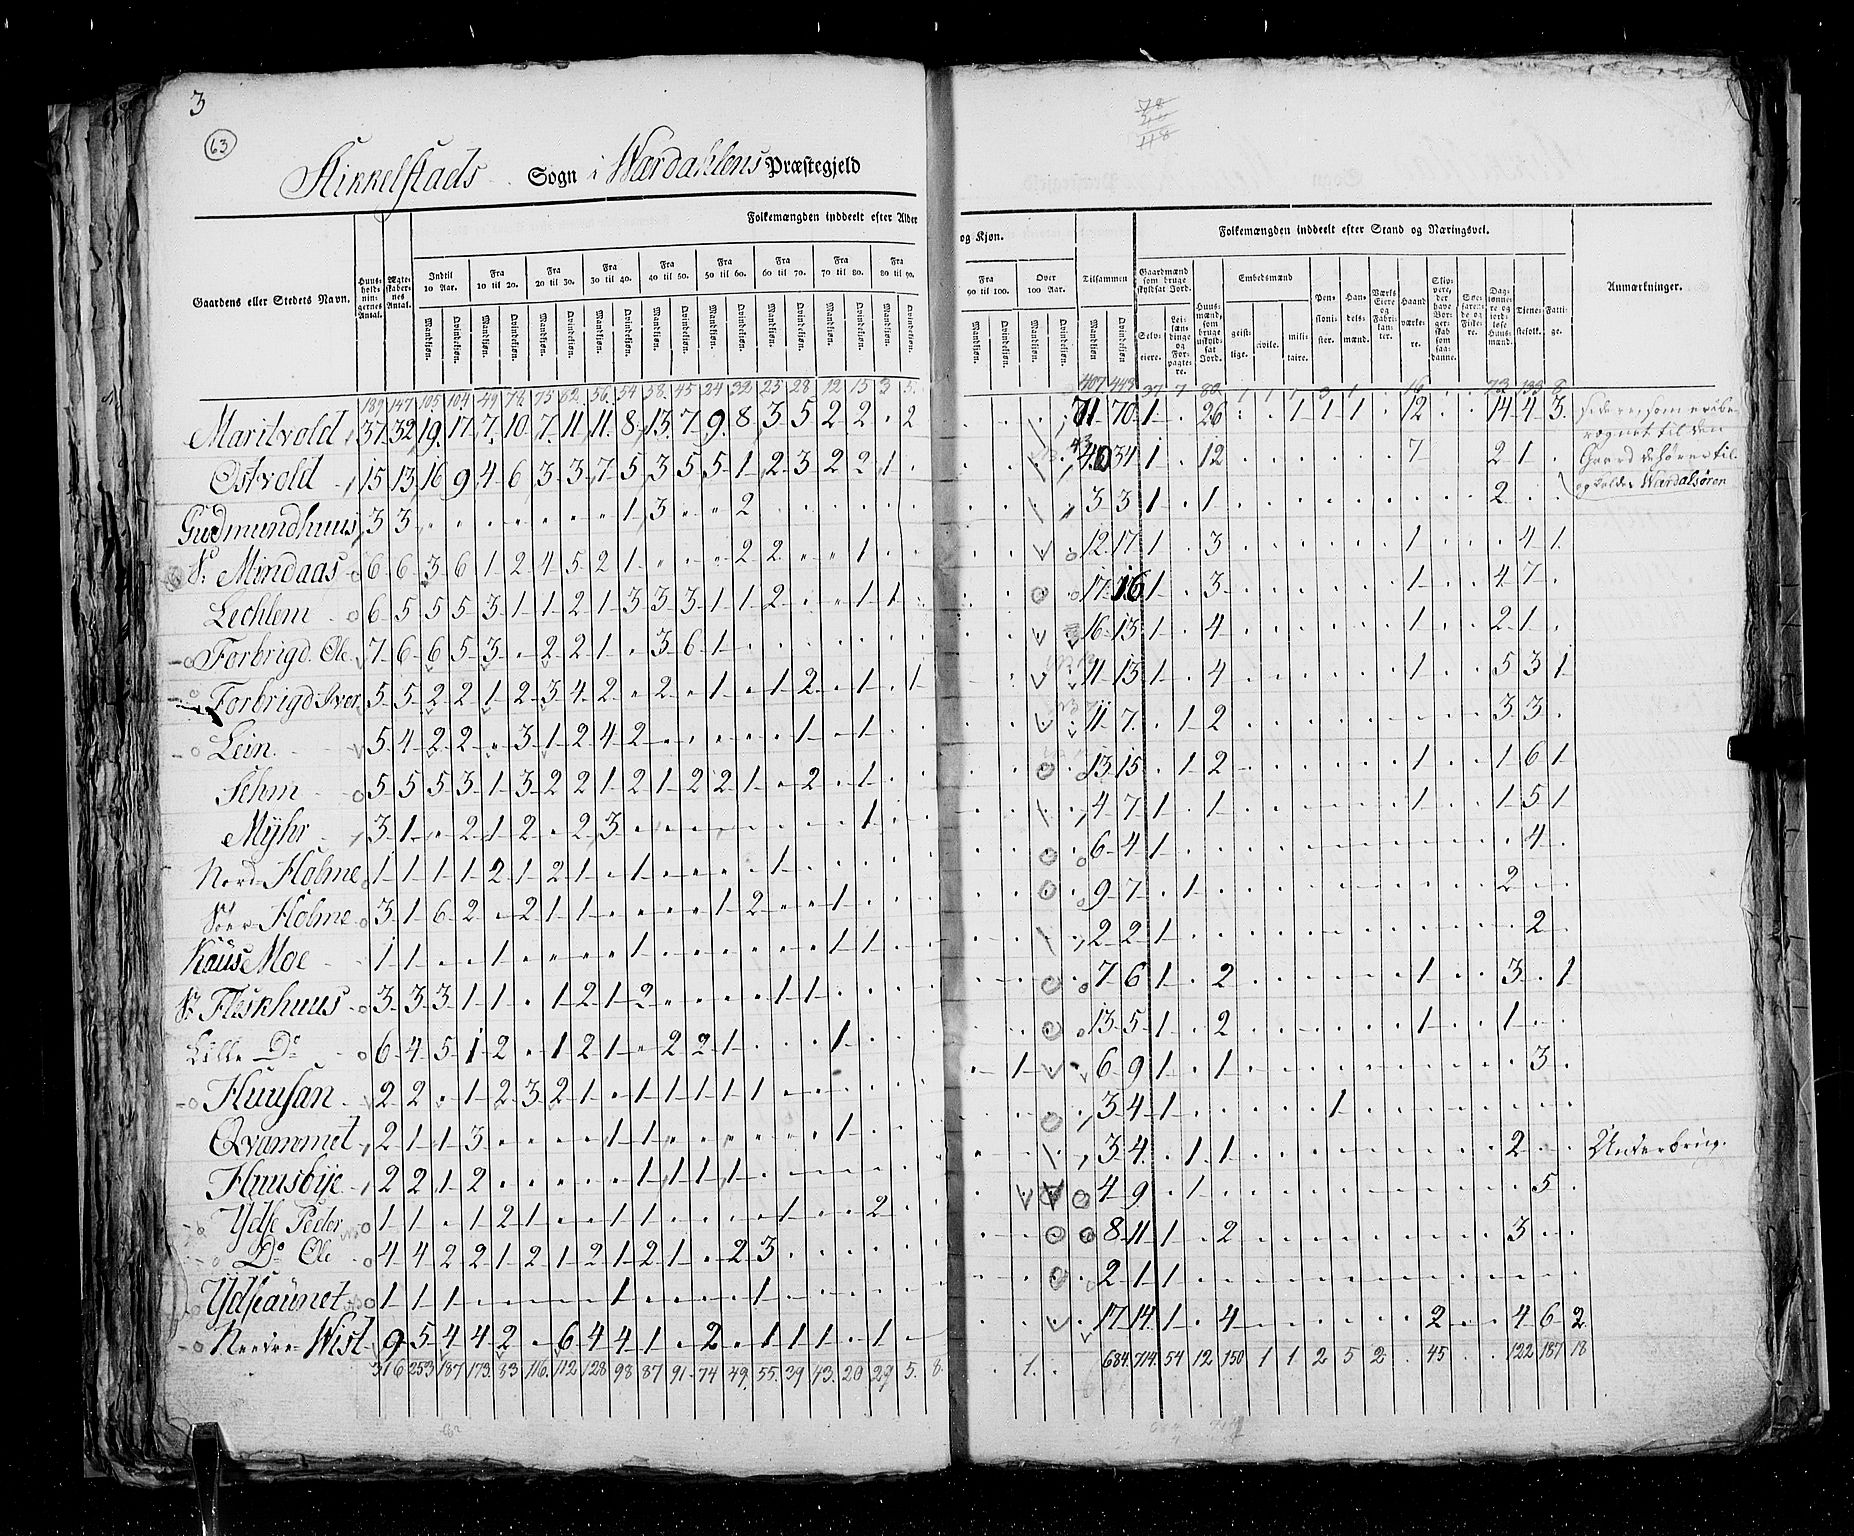 3
63
78
118
Stikkelstads Sogn i Wærdahlens Præstegjeld
Folkemængden inddeelt efter Alder og Kjøn.
Folkemængden inddeelt efter Stand og Næringsvei.
Gaardens eller Stedets Navn.
Huus-holdningernes Antal.
Ægteskabernes Antal.
Indtil 10 Aar.
Fra 10 til 20.
Fra 20 til 30.
Fra 30 til 40.
Fra 40 til 50.
Fra 50 til 60.
Fra 60 til 70.
Fra 70 til 80.
Fra 80 til 90.
Fra 90 til 100.
Over 100 Aar.
Tilsammen
Mandkjøn. Qvindekjøn.
Gaardmænd som bruge skyldsat Jord.
Selveiere.
Leilændinge og Forpagtere.
Huusmænd, som bruge uskyldsat Jord.
Embedsmænd
geistlige. civile. militaire.
Pensionister.
Handelsmænd.
Værks Eiere og Fabrikanter.
Haandværkere.
Skippere, der have Borgerskab som saadanne.
Søefarende og Fiskere.
Daglønnere og jordløse Huusmænd.
Tjenestefolk.
Fattige.
Anmærkninger.
189 147 105 104 49 74 75 62 56 54 38 45 24 32 23 28 12 15 3 5 407 443 37 7 82 1 1 1 3 1 16 73 133 8
Maritvold 37 32 19 17 7 10 7 11 11 8 13 7 9 8 3 5 2 2 . 2 71 70 1 . 26 . . 1 1 1 . 12 . . 14 4 3
Østvold 15 13 16 9 4 6 3 3 7 5 3 5 5 1 2 3 2 2 1 40 34 1 . 12 7 2 1
til den
Gaard de hører til
og kaldes Wærdalsøren
Gudmundhuus 3 3 1 3 2 3 3 1 . 1 2
St: Mindaas 6 6 3 6 1 2 4 5 2 1 2 2 1 12 17 1 . 3 1 4 1
Lechlem 6 5 5 5 3 1 1 2 1 3 3 3 1 1 2 . . 1 1 17 16 1 . 3 1 4 7
Forbrigd Ole 7 6 6 5 3 . 2 2 1 . 3 6 1 16 13 1 . 4 1 2 1
Forbrigd Iver 5 5 2 2 1 2 3 4 2 . 2 . 1 . 1 2 . 1 . 1 11 13 1 . 4 1 5 3 1
Lein 5 4 2 2 . 3 1 2 4 2 1 . 1 11 7 . 1 2 3 3
Sehm 5 5 5 3 1 3 2 2 1 2 1 2 2 1 . 2 . 1 13 15 . 1 2 1 1 6 1
Mÿhr 3 1 . 2 1 2 . 2 3 1 4 7 1 . 1 1 1 5 1
Nord Holme 1 1 1 1 2 1 2 1 . 1 1 6 4 1 4
Søer Holme 3 1 6 2 . 2 1 1 1 2 . . 1 9 7 . 1 2
Kaus Moe 1 1 . . 1 1 1 1 2 2 1 2
St. Fleskhuus 3 3 3 1 1 . 1 2 1 2 1 1 7 6 1 . 2 1 3 . 1
Lille Do 6 4 5 1 2 . 1 2 1 . 2 2 1 1 13 5 1 . 2 1 1
Huusan 2 2 . 1 2 3 2 1 . 1 1 1 1 1 1 6 9 1 . 1 3
Qvammet 2 1 1 3 1 1 1 3 4 1 1
Huusbÿe 2 2 1 2 1 1 1 1 3 4 . 1 1 2 Underbrug.
Ydse Peder 1 1 . 1 2 1 . . 1 1 1 2 4 9 . 1 5
Do Ole 4 4 2 2 1 2 1 2 1 2 1 . 2 3 8 11 1 . 2 3
Ÿdseaunet 1 1 1 1 1 2 1 1
Nerdre Wist 9 5 4 4 2 . 6 4 4 1 . 2 . 1 1 1 . 1 17 14 1 . 4 2 4 6 2
316 253 187 173 83 116 112 128 98 87 91 74 49 55 39 43 20 29 5 8 1 684 714 54 12 150 1 1 2 5 2 . 45 122 187 18